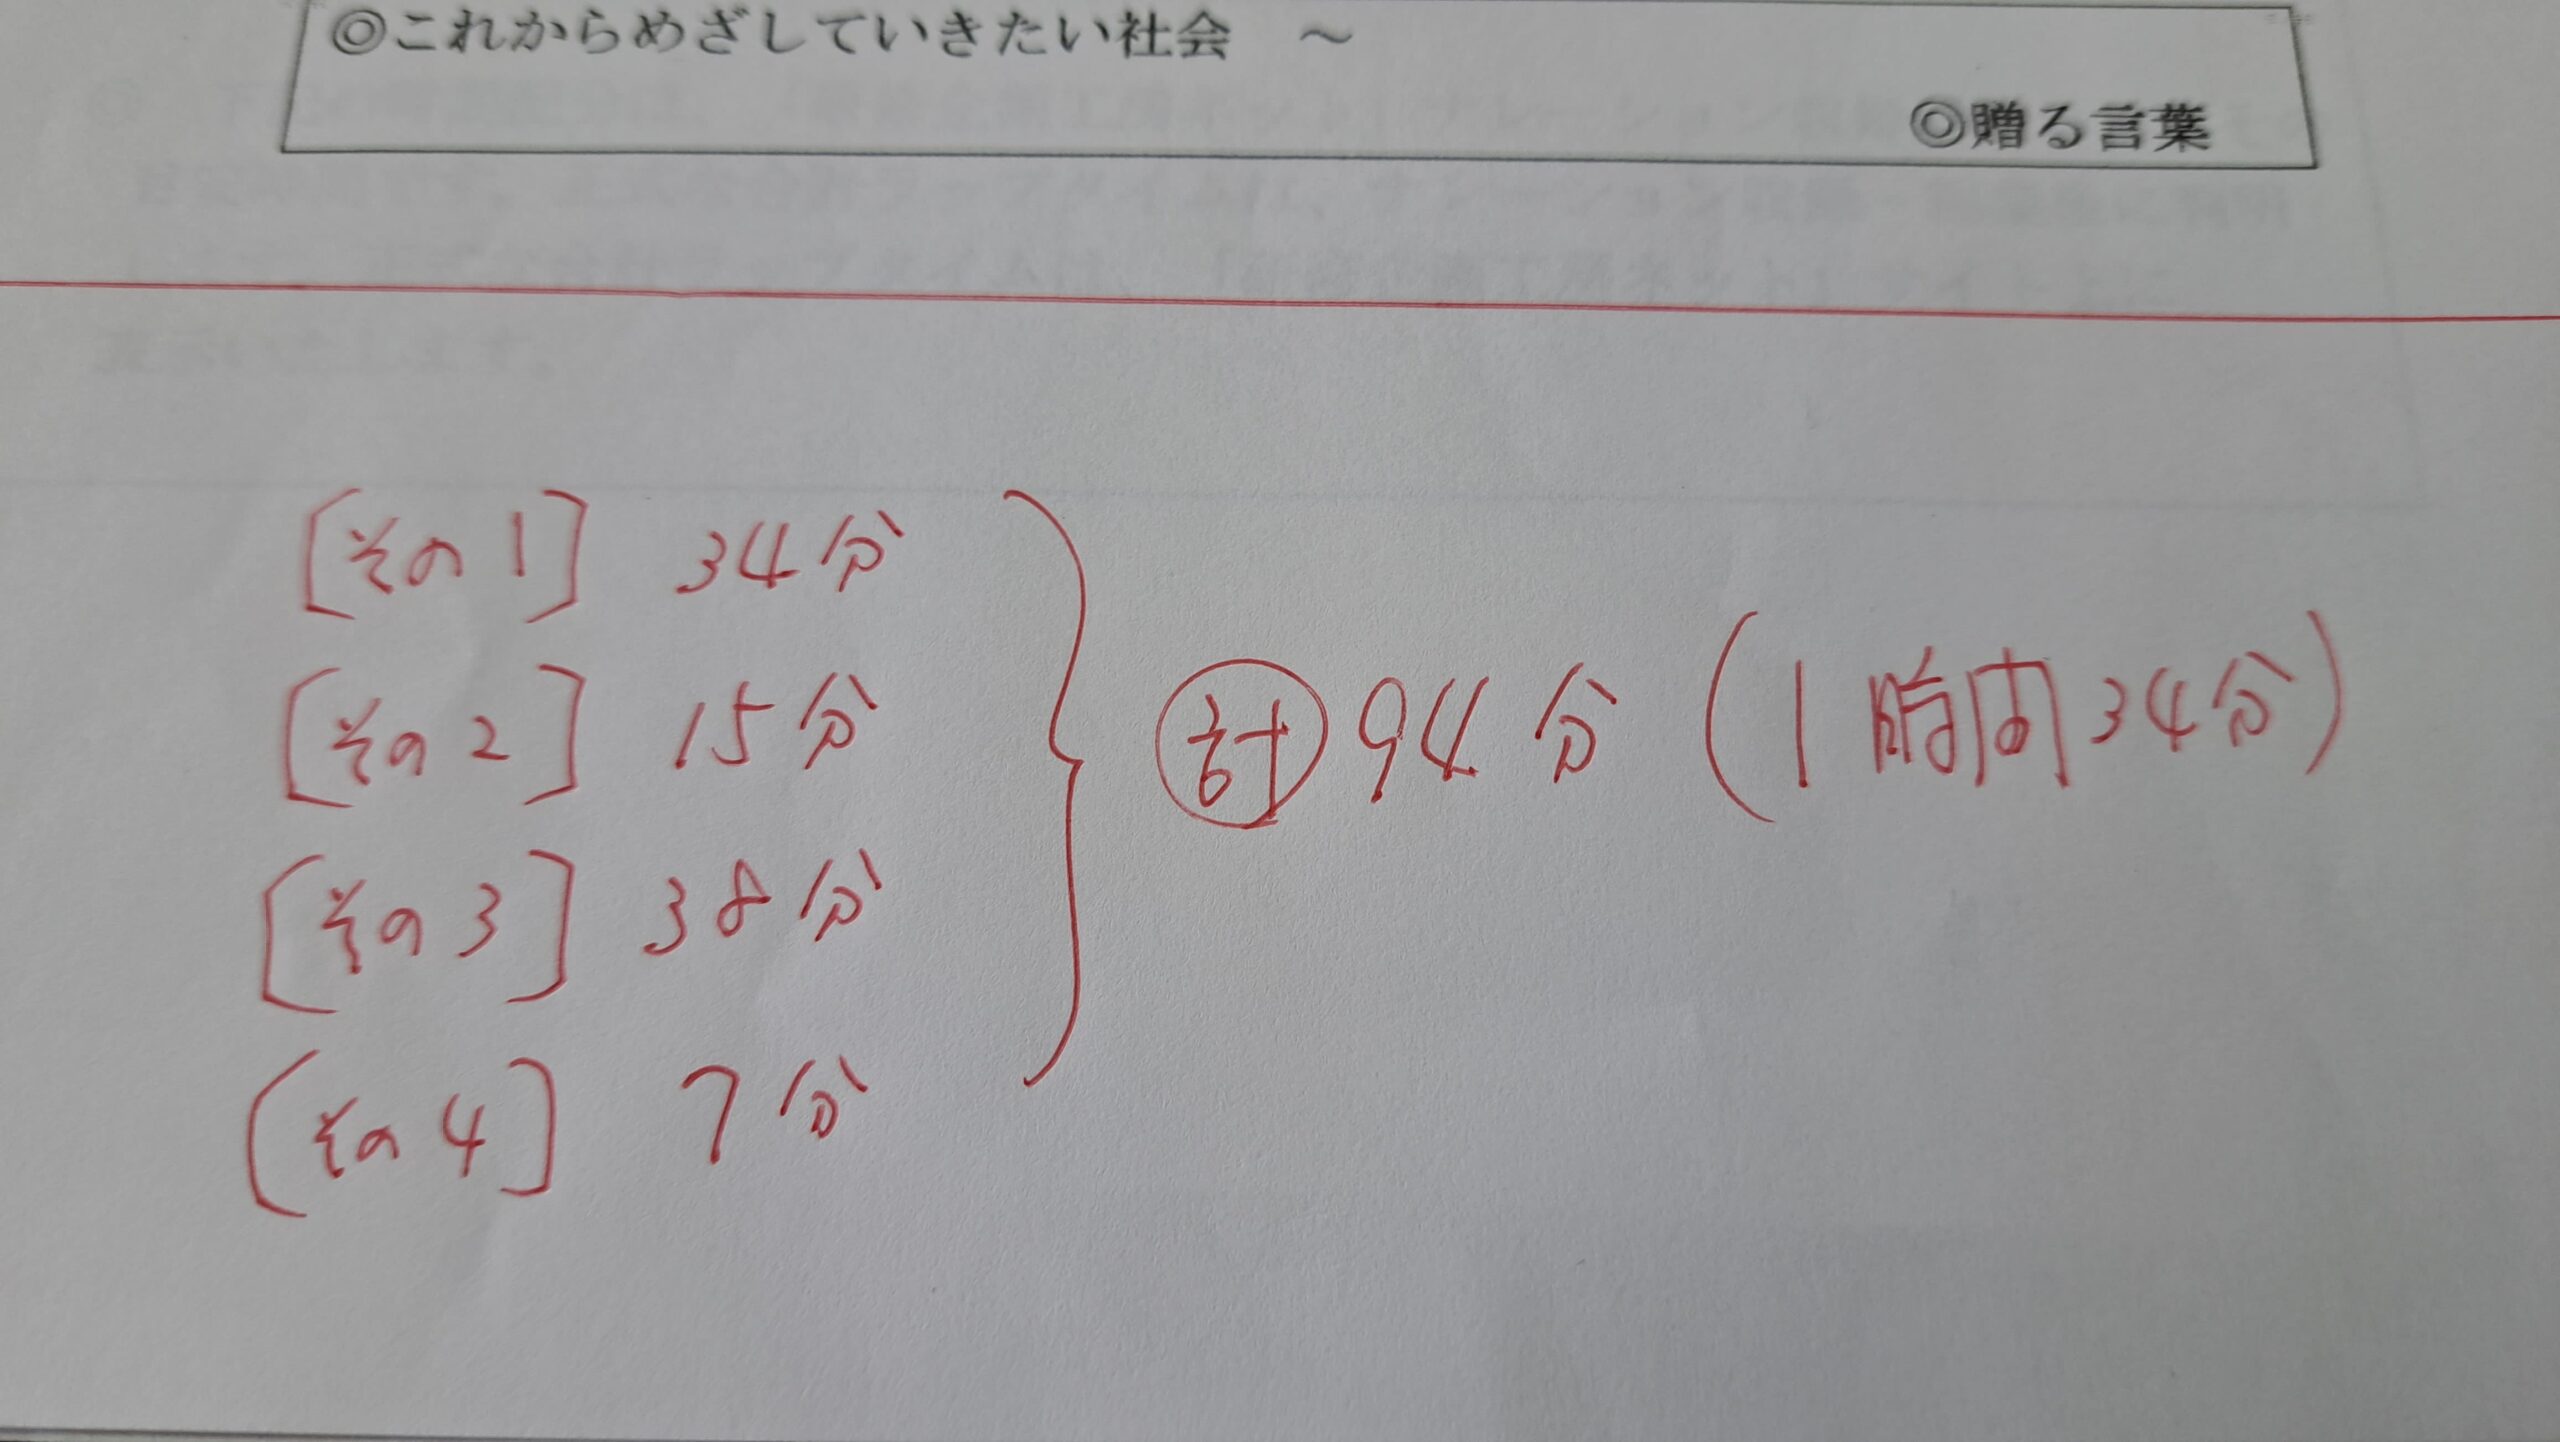 ◎これからめざしていきたい社会　～
◎贈る言葉
[その1] 34分
[その2] 15分
[その3] 38分
[その4] 7分
計 94分 (1時間34分)